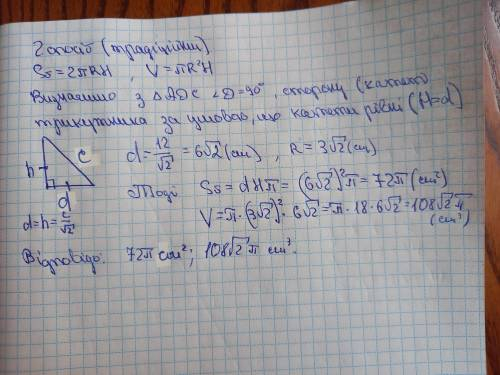 2 спосіб (традиційний)
Sδ = 2πRH , V = πR²H
Визначимо з △ADC ∠D=90°, сторону (катет)
трикутника за умовою, що катети рівні (H=d)
h c d
d = 12/√2 = 6√2 (см) , R = 3√2 (см)
Тоді Sδ = dHπ = (6√2)²π = 72π (см²)
V = π·(3√2)²·6√2 = π·18·6√2 = 108√2 π (см³)
d=h= c/√2
Відповідь: 72π см²; 108√2 π см³.